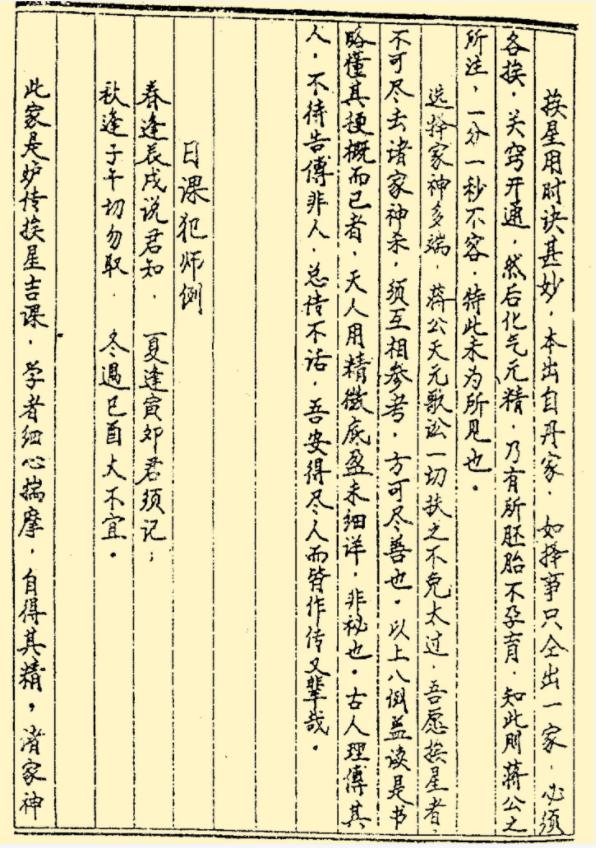 挨星用时诀甚妙．本出自丹家．如择事只仝出一家．必须
各挨．关窍开通．然后化气元精，乃有所胚胎不孕育．知此则蒋公之
所注，一分一秒不容．特此未为所见也。
选择家神多端．蒋公天元歌讼一切扶之不免太过．吾愿挨星者，
不可尽去诸家神杀，须互相参考，方可尽善也．以上八例益读是书
略懂其梗概而已者，天人用精微底盈未细详，非秘也．古人理傅其
人．不待告傅非人．总恃不话，吾安得尽人而皆作传又辈哉。
日课犯师例
春逢辰戌说君知． 夏逢寅卯君须记；
秋逢子午切勿取． 冬遇巳酉大不宜。
此家是妒传挨星吉课．学者细心揣摩，自得其精，渚家神